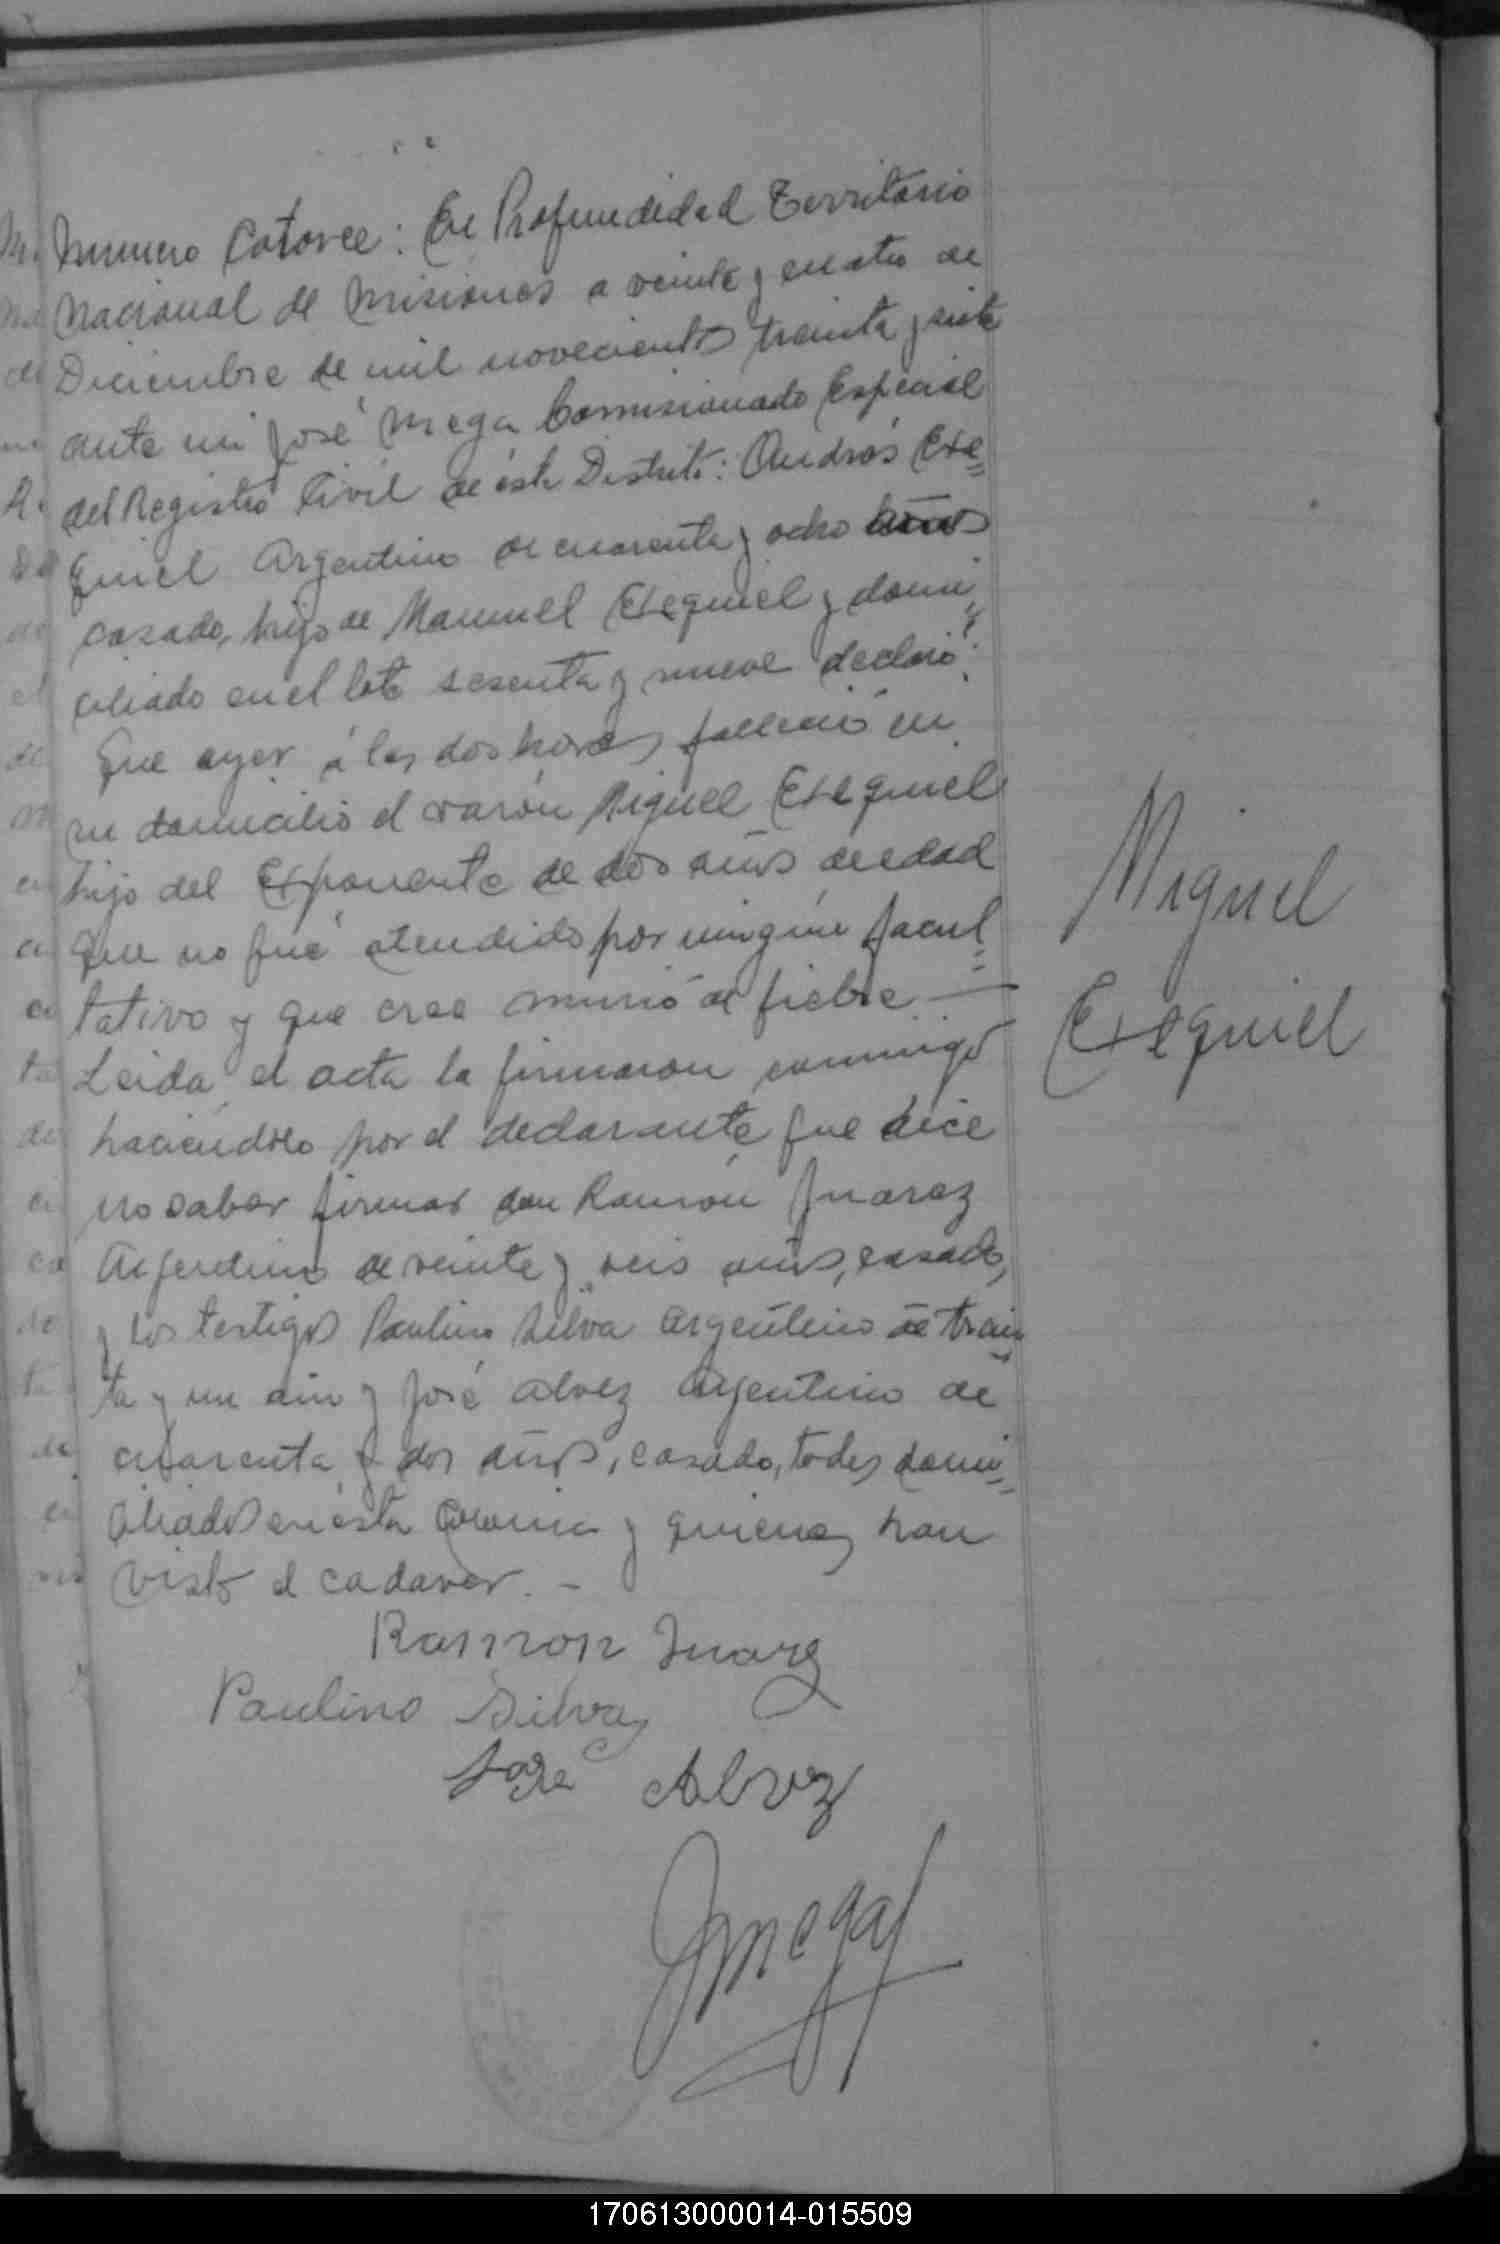 Numero Catorce: En Profundidad Territorio
Nacional de Misiones a veinte y cuatro de
Diciembre de mil novecientos treinta y siete
ante mi José Mega Comisionado Especial
del Registro Civil de éste Distrito: Andrés Exe=
quiel Argentino de cuarenta y ocho años
casado, hijo de Manuel Exequiel y domi=
ciliado en el lote sesenta y nueve declaró:
Que ayer á las dos horas falleció en
su domicilio el varón Miguel Exequiel
hijo del Exponente de dos años de edad
que no fué atendido por ningún facul=
tativo y que cree murió de fiebre —
Leida el acta la firmaron conmigo
haciéndolo por el declarante que dice
no saber firmar don Ramón Juarez
Argentino de veinte y seis años, casado,
y los testigos Paulino Silva argentino de train=
ta y un año y José Alvez argentino de
cuarenta y dos años, casado, todos domi=
ciliados en ésta Colonia y quienes han
visto el cadaver. –
Ramon Juarez
Paulino Silva
José Alvez
JMega
Miguel
Exequiel
170613000014-015509